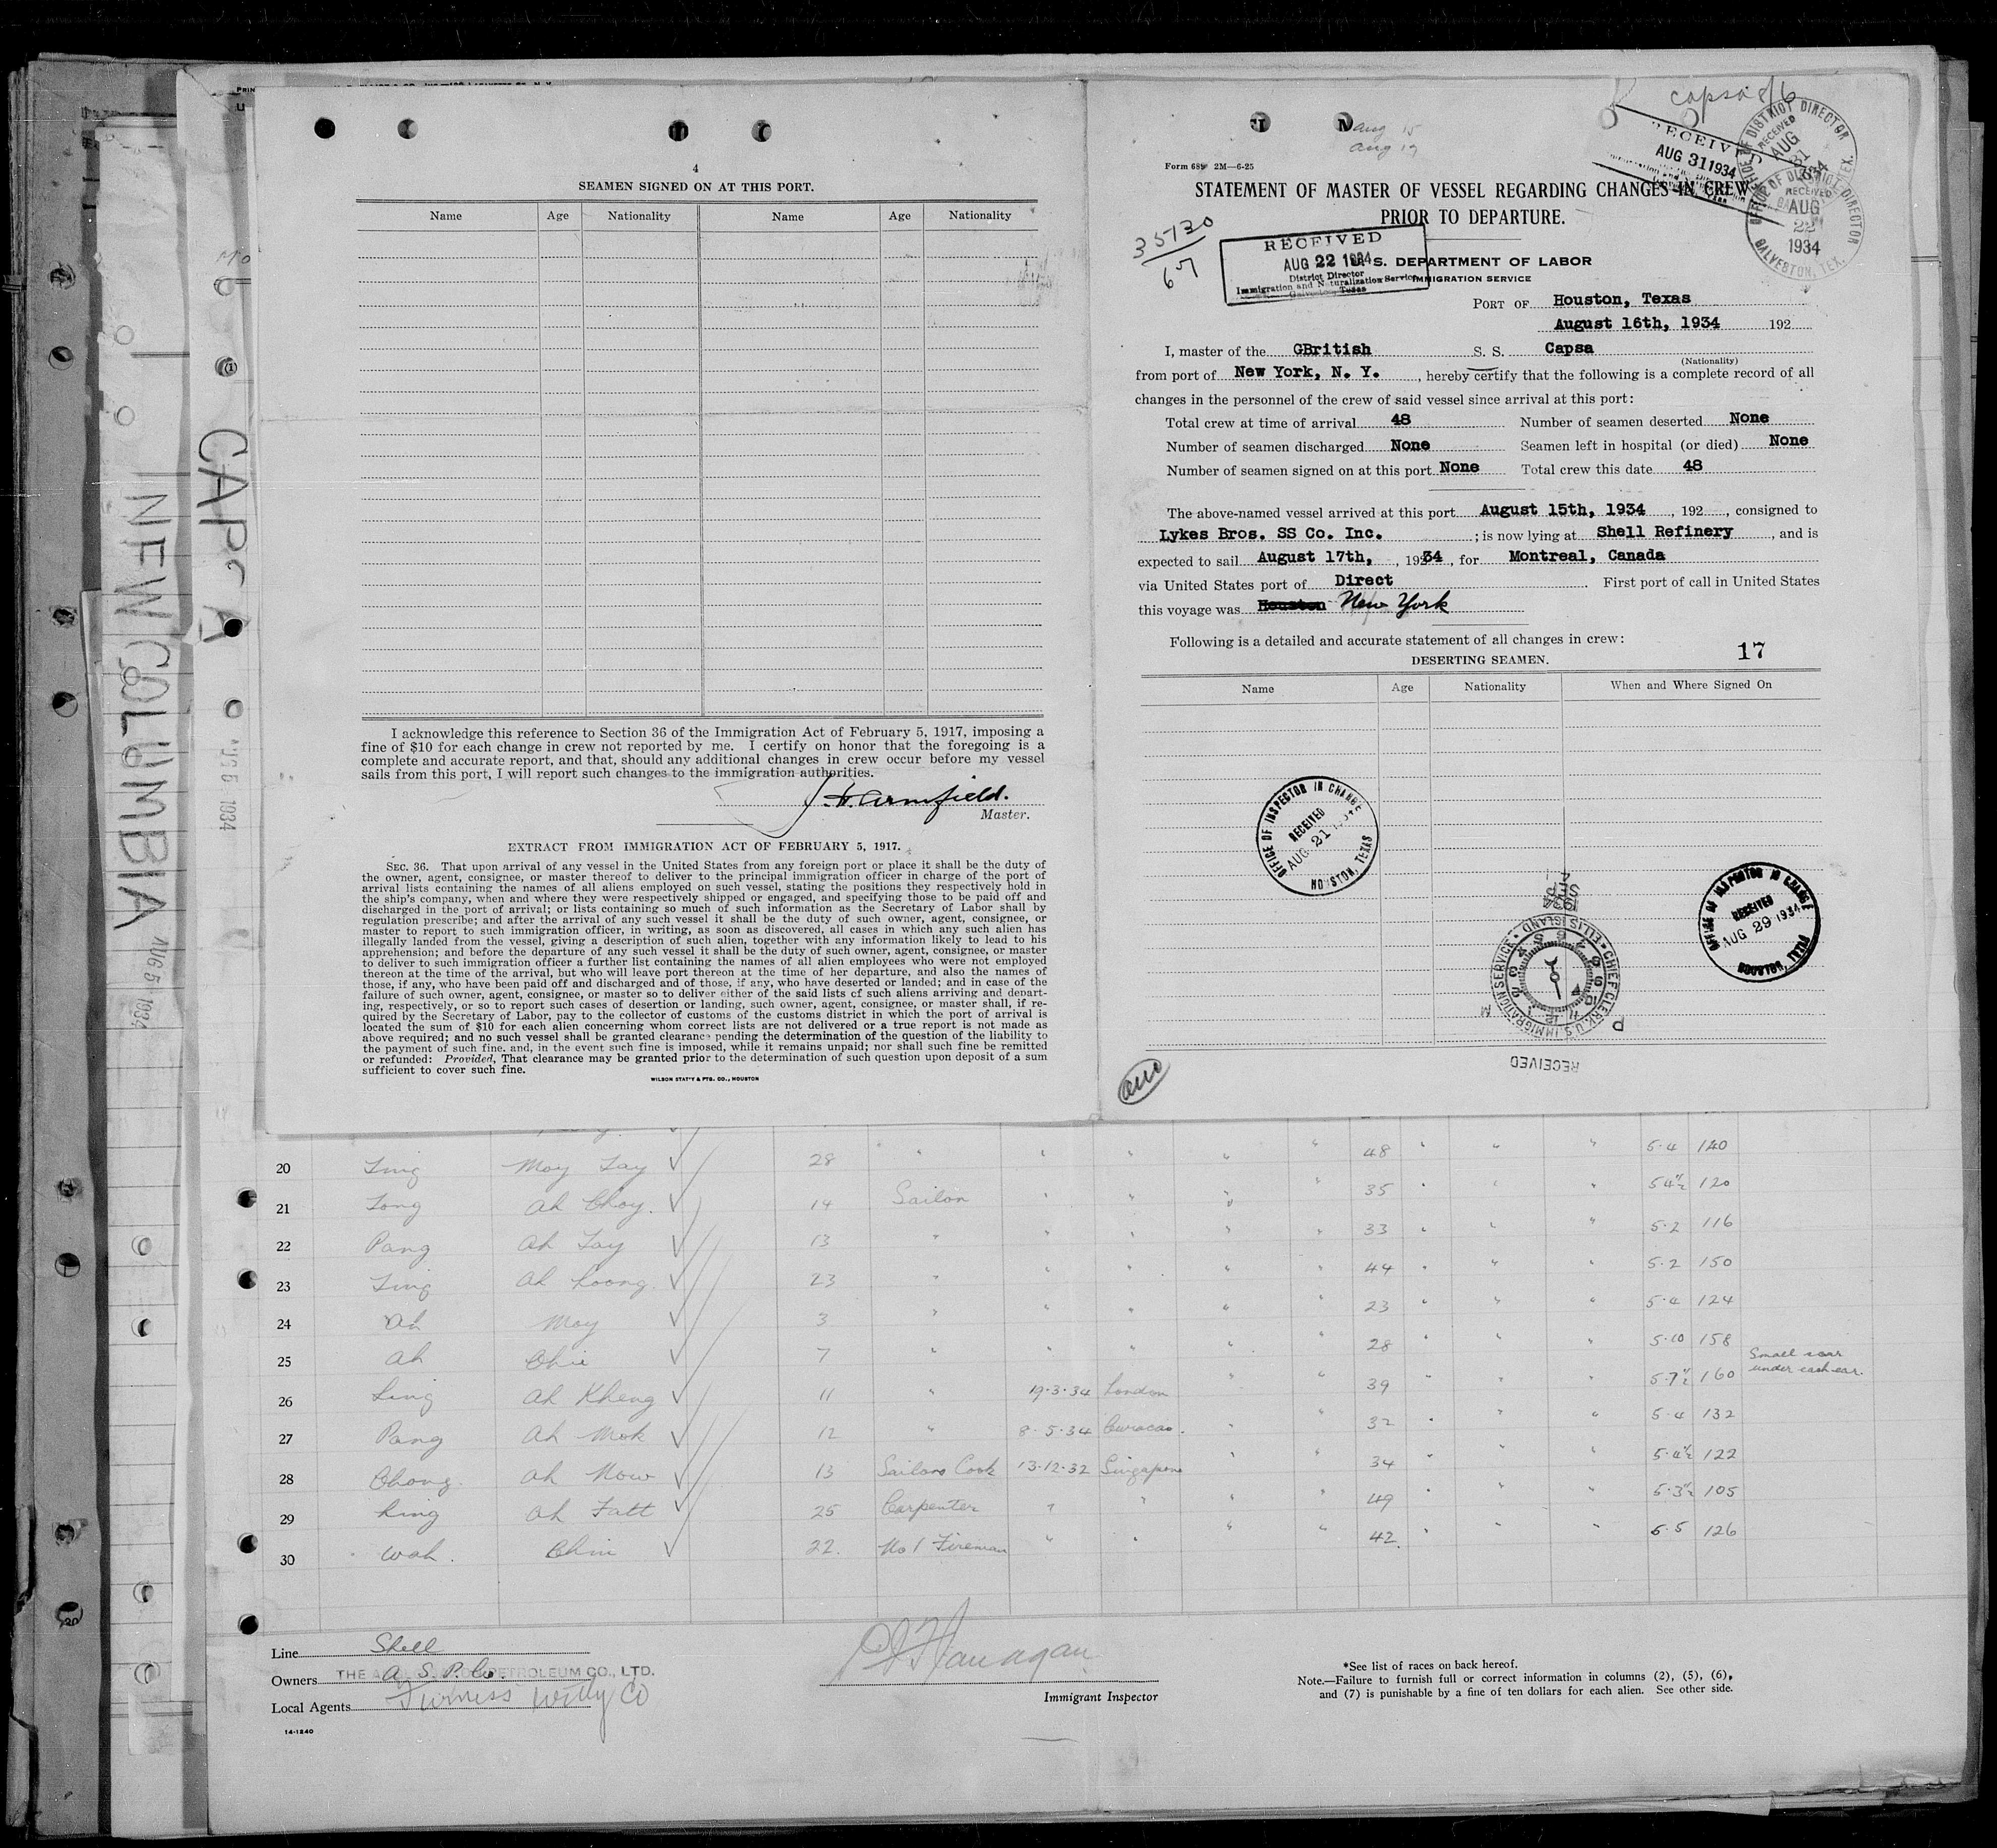 4
SEAMEN SIGNED ON AT THIS PORT.
Name Age Nationality Name Age Nationality
I acknowledge this reference to Section 36 of the Immigration Act of February 5, 1917, imposing a
fine of $10 for each change in crew not reported by me. I certify on honor that the foregoing is a
complete and accurate report, and that, should any additional changes in crew occur before my vessel
sails from this port, I will report such changes to the immigration authorities.
Armfield.
Master.
EXTRACT FROM IMMIGRATION ACT OF FEBRUARY 5, 1917.
SEC. 36. That upon arrival of any vessel in the United States from any foreign port or place it shall be the duty of
the owner, agent, consignee, or master thereof to deliver to the principal immigration officer in charge of the port of
arrival lists containing the names of all aliens employed on such vessel, stating the positions they respectively hold in
the ship's company, when and where they were respectively shipped or engaged, and specifying those to be paid off and
discharged in the port of arrival; or lists containing so much of such information as the Secretary of Labor shall by
regulation prescribe; and after the arrival of any such vessel it shall be the duty of such owner, agent, consignee, or
master to report to such immigration officer, in writing, as soon as discovered, all cases in which any such alien has
illegally landed from the vessel, giving a description of such alien, together with any information likely to lead to his
apprehension; and before the departure of any such vessel it shall be the duty of such owner, agent, consignee, or master
to deliver to such immigration officer a further list containing the names of all alien employees who were not employed
thereon at the time of the arrival, but who will leave port thereon at the time of her departure, and also the names of
those, if any, who have been paid off and discharged and of those, if any, who have deserted or landed; and in case of the
failure of such owner, agent, consignee, or master so to deliver either of the said lists of such aliens arriving and depart-
ing, respectively, or so to report such cases of desertion or landing, such owner, agent, consignee, or master shall, if re-
quired by the Secretary of Labor, pay to the collector of customs of the customs district in which the port of arrival is
located the sum of $10 for each alien concerning whom correct lists are not delivered or a true report is not made as
above required; and no such vessel shall be granted clearance pending the determination of the question of the liability to
the payment of such fine, and, in the event such fine is imposed, while it remains unpaid; nor shall such fine be remitted
or refunded: Provided, That clearance may be granted prior to the determination of such question upon deposit of a sum
sufficient to cover such fine.
WILSON STAT'Y & PTG. CO., HOUSTON
capsa 8/6
Aug 15
Aug 17
Form 689 2M—6-25
STATEMENT OF MASTER OF VESSEL REGARDING CHANGES IN CREW
PRIOR TO DEPARTURE.
RECEIVED
AUG 31 1934
OFFICE OF DISTRICT DIRECTOR
RECEIVED
AUG 31 1934
RECEIVED
AUG
22
1934
GALVESTON, TEX.
35130
67
RECEIVED
AUG 22 1934
District Director
Immigration and Naturalization Service
Galveston, Texas
U. S. DEPARTMENT OF LABOR
IMMIGRATION SERVICE
PORT OF Houston, Texas
August 16th, 1934 192
I, master of the GBritish S. S. Capsa
(Nationality)
from port of New York, N. Y. , hereby certify that the following is a complete record of all
changes in the personnel of the crew of said vessel since arrival at this port:
Total crew at time of arrival 48 Number of seamen deserted None
Number of seamen discharged None Seamen left in hospital (or died) None
Number of seamen signed on at this port None Total crew this date 48
The above-named vessel arrived at this port August 15th, 1934 , 192 , consigned to
Lykes Bros. SS Co. Inc. ; is now lying at Shell Refinery , and is
expected to sail August 17th, , 19234 , for Montreal, Canada
via United States port of Direct . First port of call in United States
this voyage was Houston New York
Following is a detailed and accurate statement of all changes in crew:
DESERTING SEAMEN. 17
Name Age Nationality When and Where Signed On
OFFICE OF INSPECTOR IN CHARGE
RECEIVED
AUG 21 1934
HOUSTON, TEXAS
OFFICE OF INSPECTOR IN CHARGE
RECEIVED
AUG 29 1934
HOUSTON, TEXAS
CHIEF CLERK, U.S. IMMIGRATION SERVICE • ELLIS ISLAND
RECEIVED
CAPSA
AUG 5 1934
NEW COLUMBIA
AUG 5 1934
20 Ling Moy Tay 28 " " " " " 48 " " " 5·4 140
21 Tong Ah Choy. 14 Sailor " " " " 35 " " " 5 4½ 120
22 Pang Ah Tay 13 " " " " " 33 " " " 5·2 116
23 Ting Ah Loong. 23 " " " " " 44 " " " 5·2 150
24 Ah Moy 3 " " " " " 23 " " " 5·4 124
25 Ah Chie 7 " " " " " 28 " " " 5·10 158
26 Ling Ah Kheng 11 " 19·3·34 London " " 39 " " " 5·7½ 160 Small scar under each ear.
27 Pang Ah Mok 12 " 8·5·34 Curacao. " " 32 " " " 5·4 132
28 Chong. Ah Now 13 Sailors Cook 13·12·32 Singapore " " 34 " " " 5·4½ 122
29 Ling Ah Fatt 25 Carpenter " " " " 49 " " " 5·3½ 105
30 Wah. Chin 22. No 1 Fireman " " " " 42. " " " 5·5 126
Line Shell
Owners THE PETROLEUM CO., LTD. A. S. P. Co.
Local Agents Furness Withy Co
14-1240
Flanagan
Immigrant Inspector
*See list of races on back hereof.
Note.—Failure to furnish full or correct information in columns (2), (5), (6),
and (7) is punishable by a fine of ten dollars for each alien. See other side.